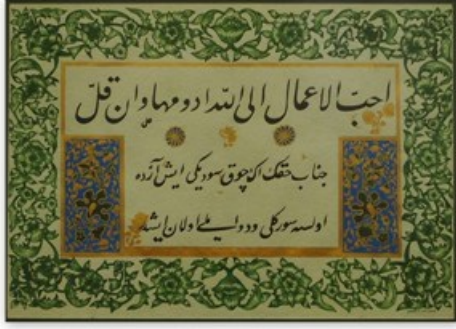 احبّ الاعمال الى اللّه ادومها وان قلّ
جناب حقك اڭ چوق سودیكی ایش آزده
اولسه سوركلی و دواملی اولان ایشدر